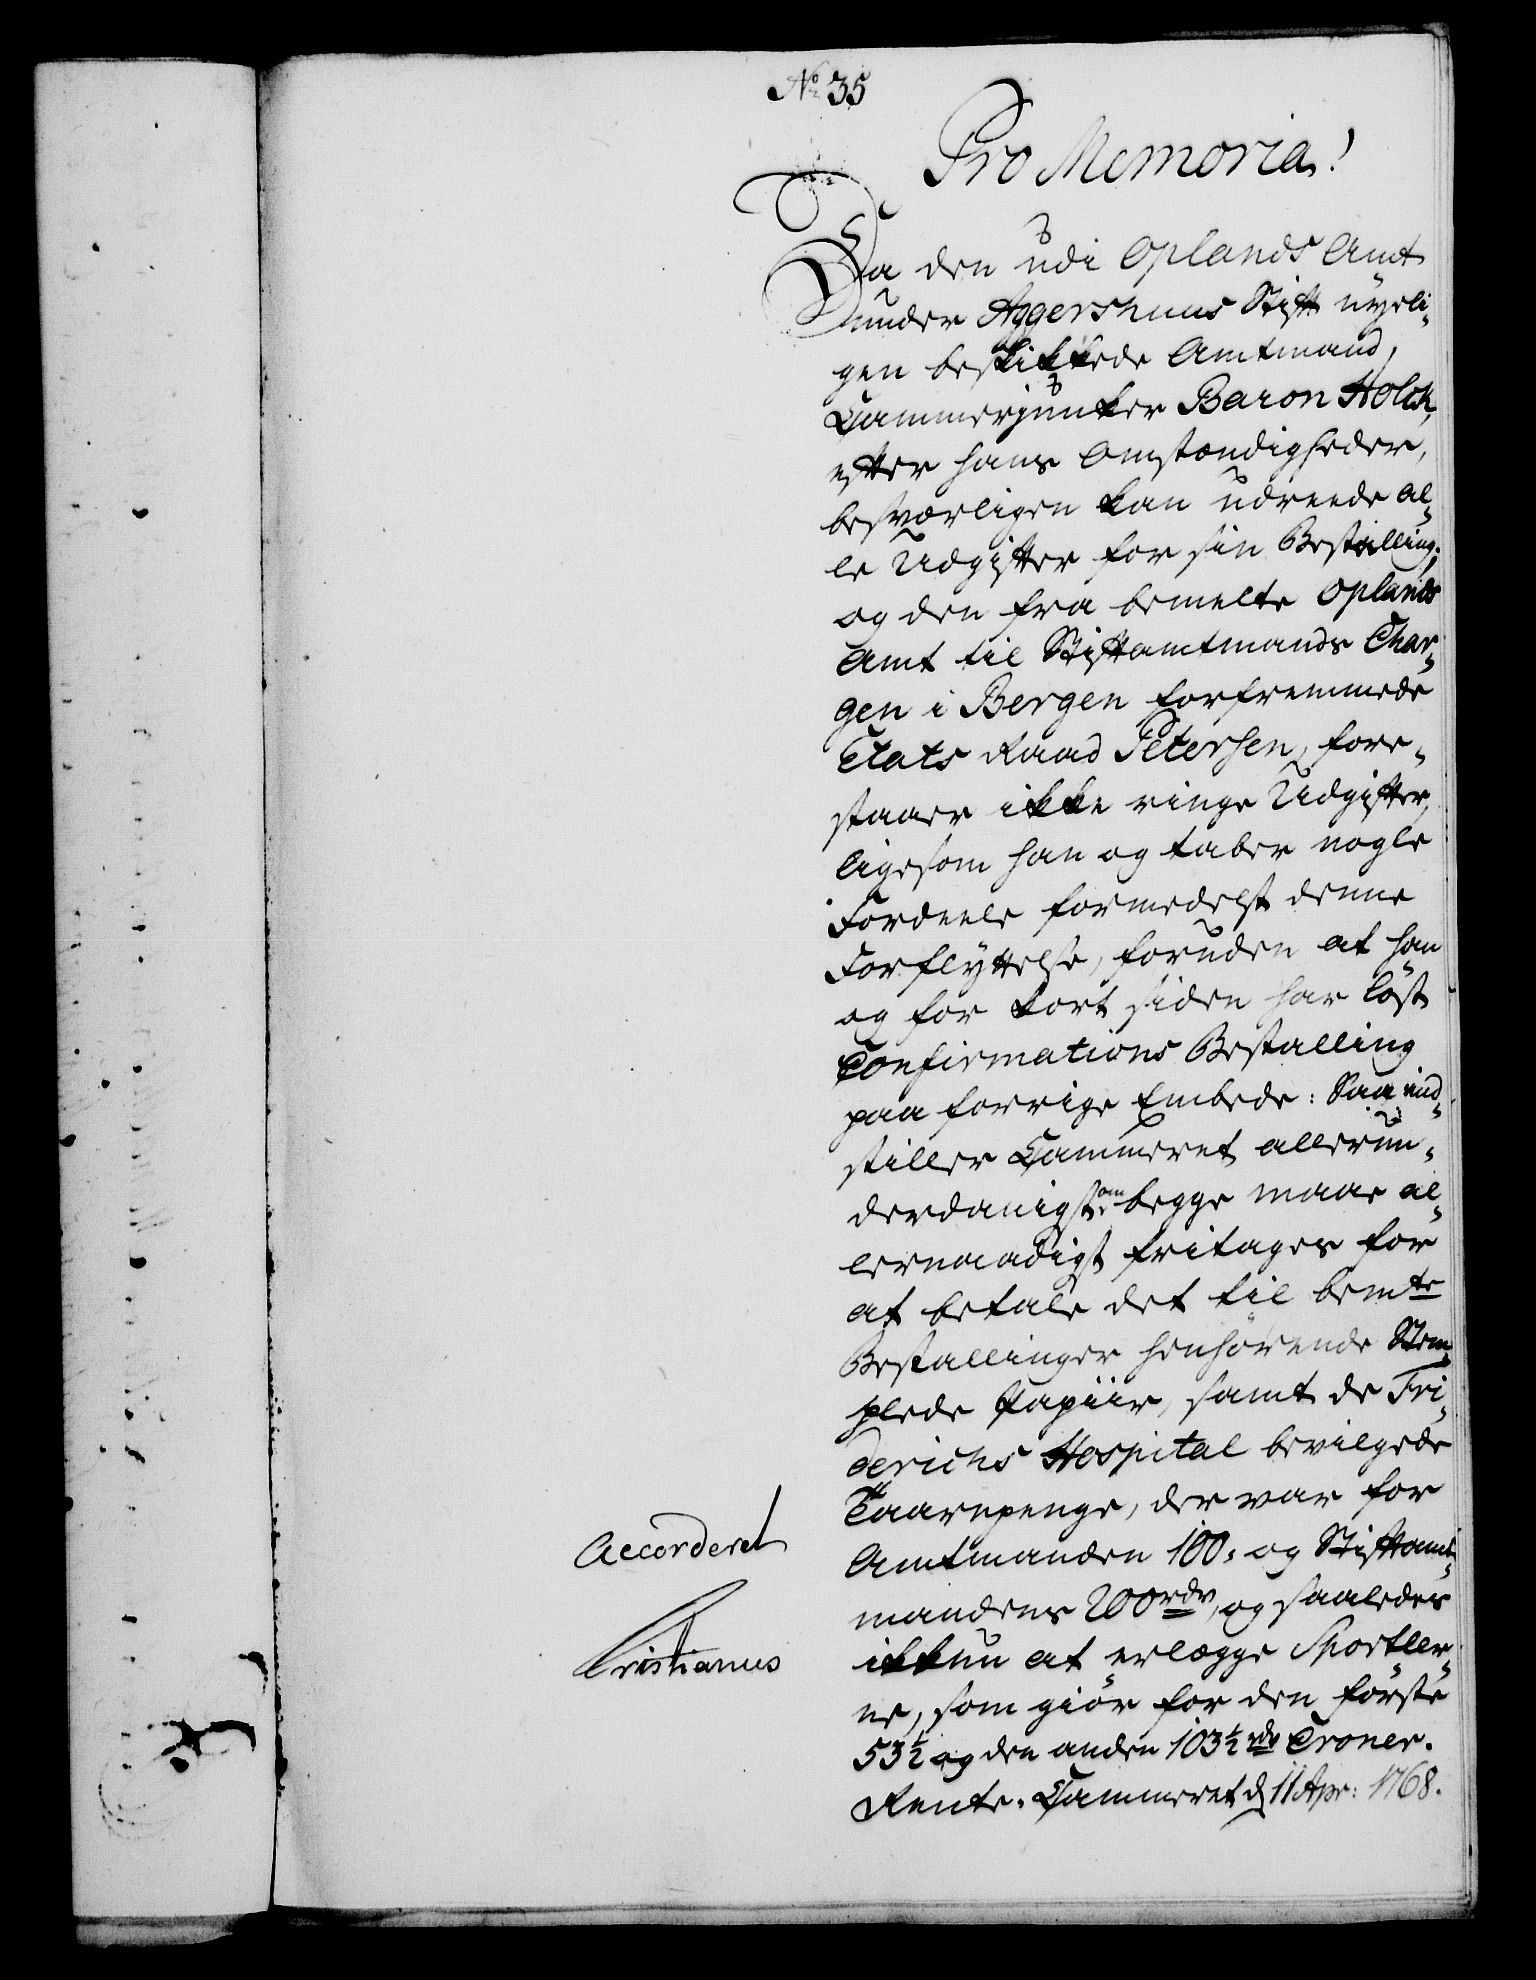 No 35
Pro Memoria!
Da den udi Oplands Amt
under Aggershuus Stift nyeli-
gen beskikkede Amtmand,
Cammerjunker Baron Holck,
efter hans Omstændigheder,
besværligen kan udreede al-
le Udgifter for sin Bestalling;
og den fra bemelte Oplands
Amt til Stiftamtmands Char-
gen i Bergen forfremmede
Etats Raad Petersen, fore-
staaer ikke ringe Udgifter,
ligesom han og taber nogle
Fordeele formedelst denne
Forflyttelse, foruden at han
og for kort siden har löst
Confirmations Bestalling
paa forrige Embede: Saa ind-
stiller Cammeret allerun-
derdanigst, om begge maae al-
lernaadigst fritages for
at betale det til bemte
Bestallinger henhörende Stem-
plede Papiir, samt de Fri-
derichs Hospital bevilgede
Taarnpenge, der var for
Amtmanden 100, og Stiftamt-
mandens 200 rdr, og saaledes
ikkun at erlægge Sportler-
ne, som giör for den förste
53½ og den anden 103½ rdr Croner.
Rente-Cammeret d 11 Apr: 1768.
Accorderet
Christianus